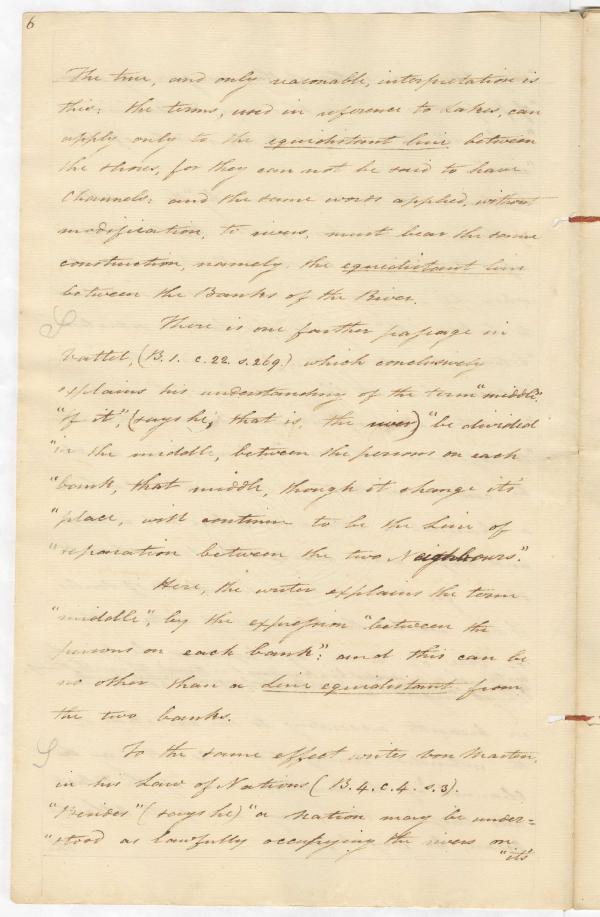 6
The true, and only reasonable, interpretation is
this: the terms, used in reference to Lakes, can
apply only to the equidistant line between
the shores, for they can not be said to have
Channels: and the same words applied, without
modification, to rivers, must bear the same
construction, namely, the equidistant line
between the Banks of the River.
There is one farther passage in
Vattel, (B. 1. c. 22. s. 269.) which conclusively
explains his understanding of the term "middle".
"If it", (says he, that is, the river) "be divided
"in the middle, between the persons on each
"bank, that middle, though it change it's
"place, will continue to be the Line of
"separation between the two Neighbours."
Here, the writer explains the term
"middle", by the expression "between the
persons on each bank": and this can be
no other than a Line equidistant from
the two banks.
To the same effect writes von Marten,
in his Law of Nations (B. 4. c. 4. s. 3).
"Besides" (says he) "a Nation may be under=
"stood as lawfully occupying the rivers on
"it's